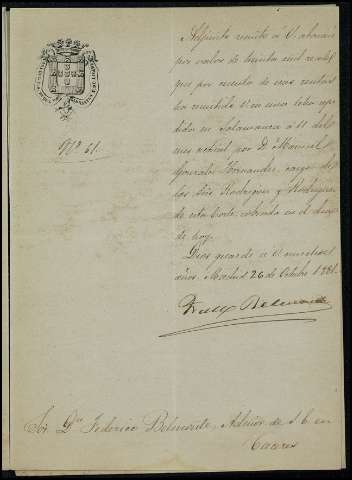 Nº 61.
Adjunto remito á V. abonaré
por valor de treinta mil reales
que por cuenta de esas rentas
ha remitido V. en una letra espe
dida en Salamanca á 11 del
mes actual, por D. Manuel
Gonzalo Hernandez, cargo de
los Sres Rodriguez y Rodriguez
de esta Corte, cobrada en el dia
de hoy.
Dios guarde á V. muchos
años. Madrid 26 de Octubre 1881.
Belmonte
Sor. Dn. Federico Belmonte, Admor. de S. E. en
Caceres